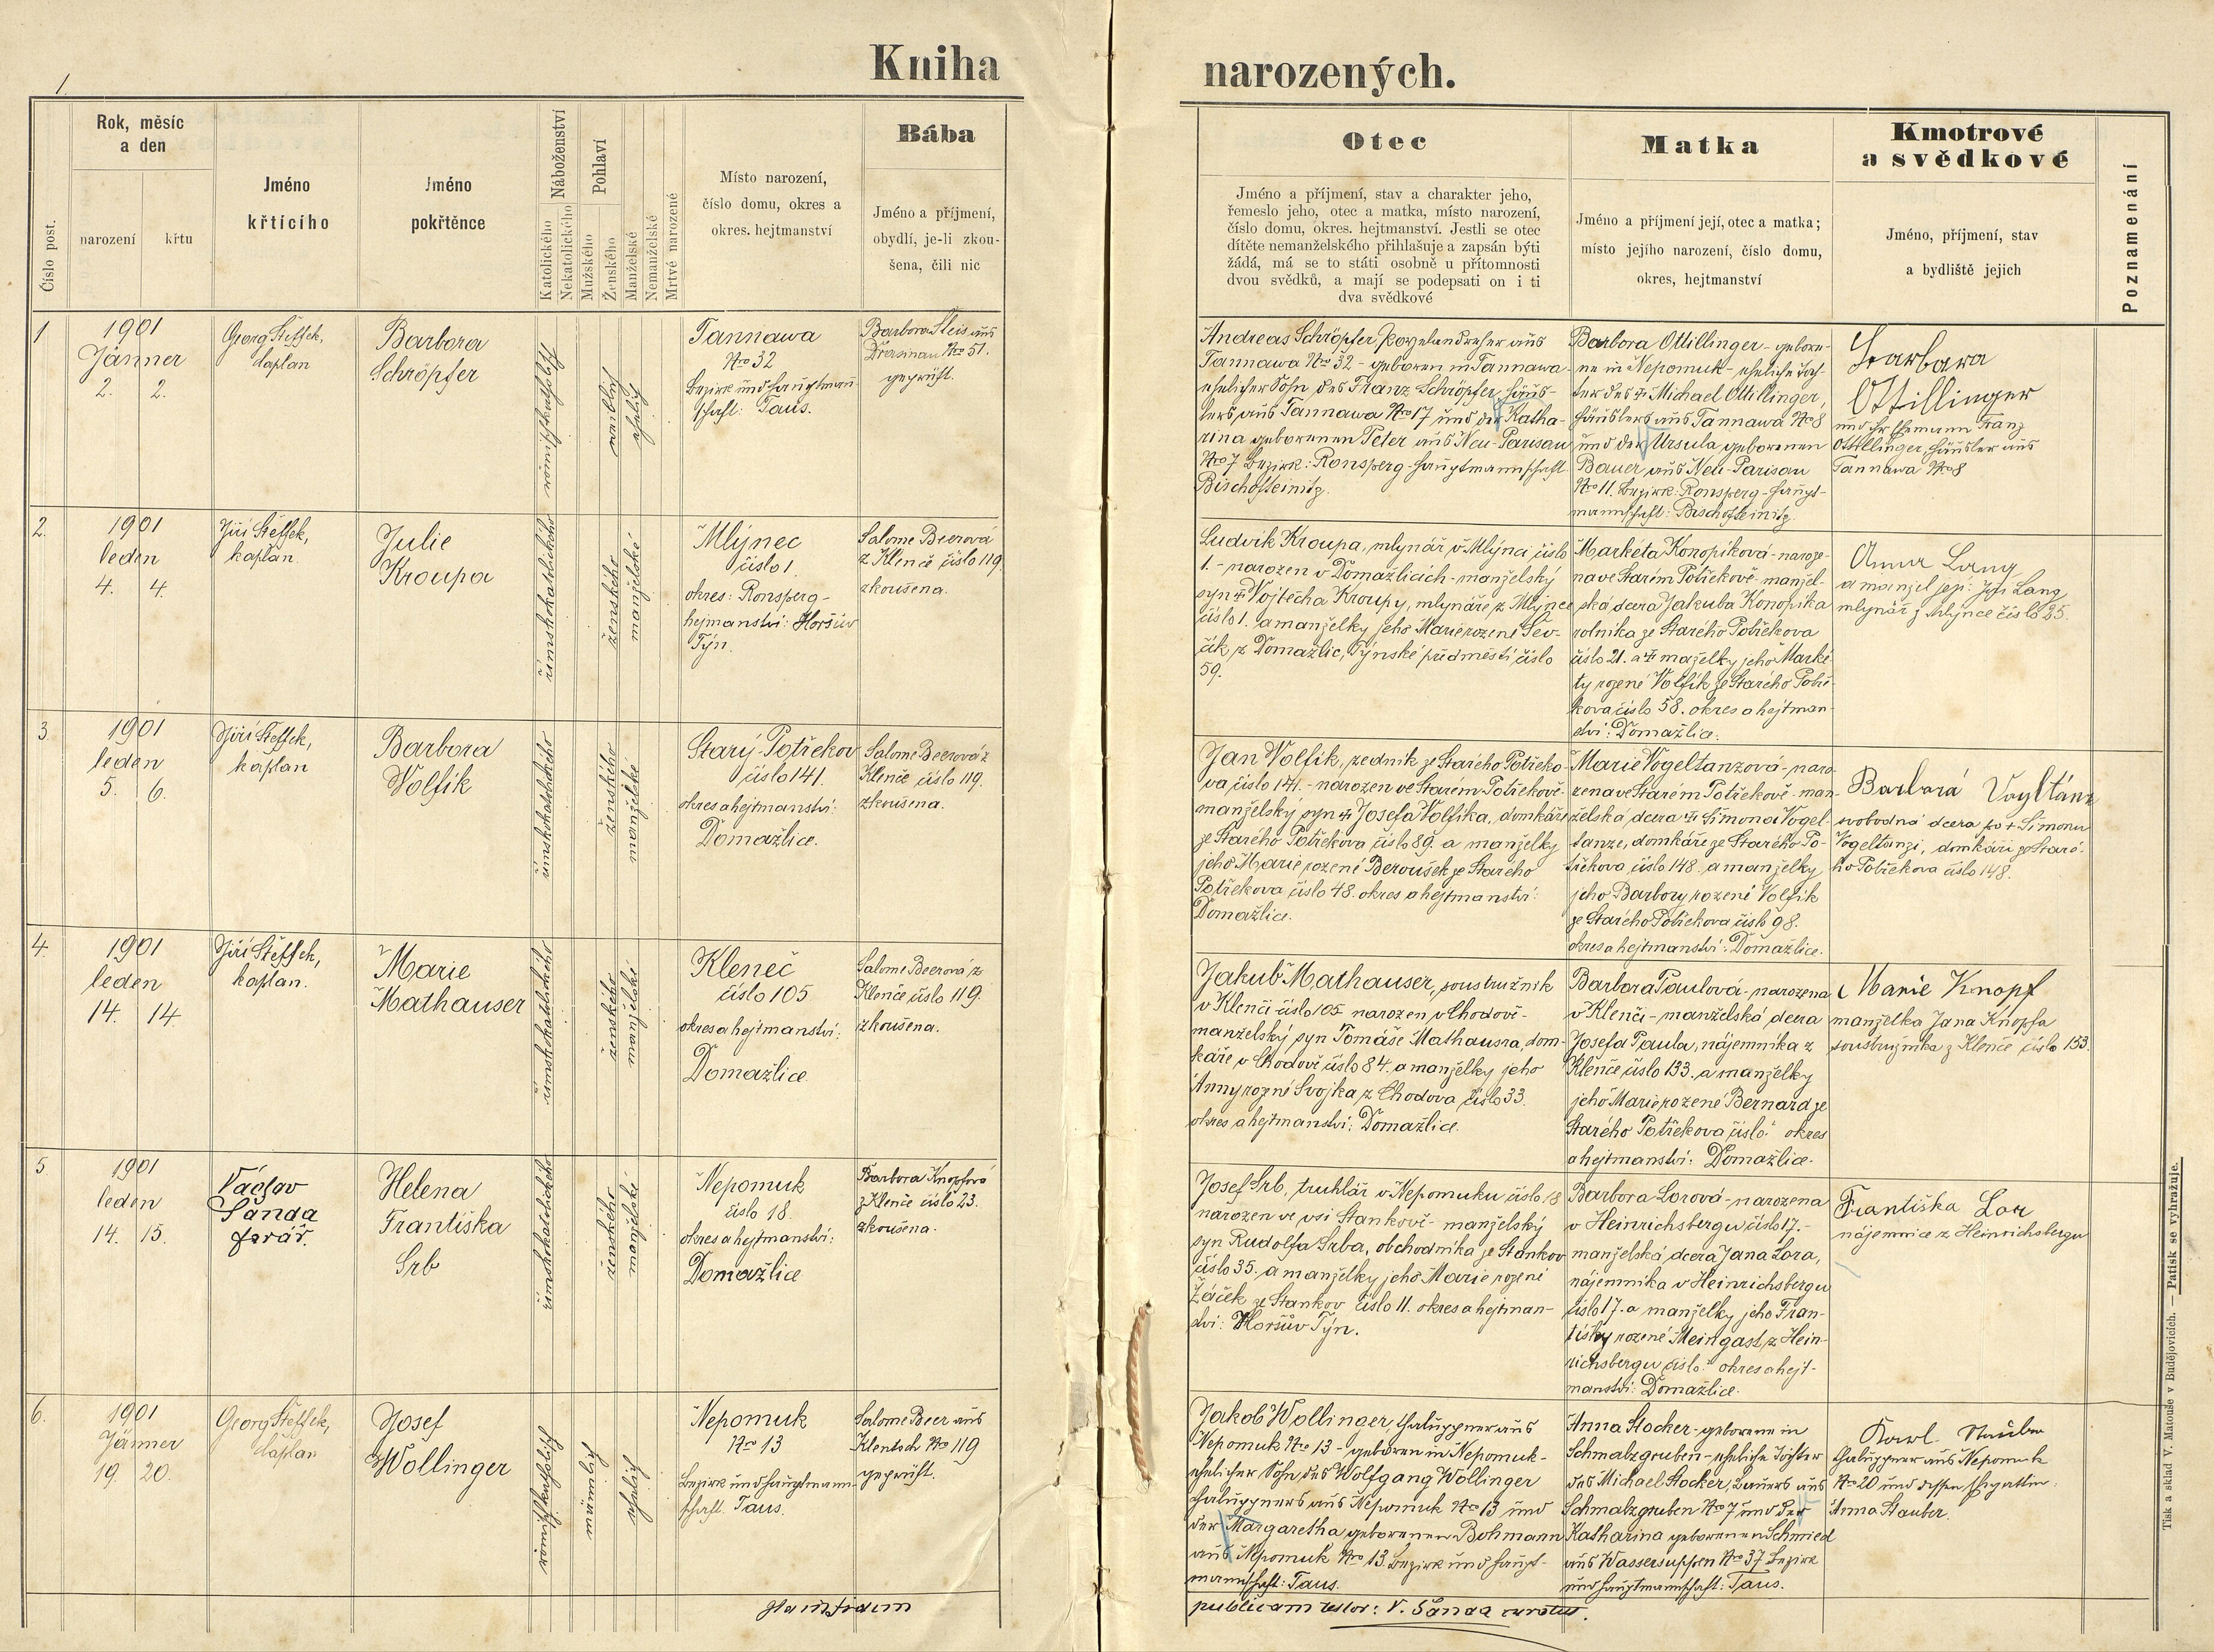 1.
Kniha narozených.
Číslo post.
Rok, měsíc
a den
narození
křtu
Jméno
křtícího
Jméno
pokřtěnce
Náboženství
Katolického
Nekatolického
Pohlaví
Mužského
Ženského
Manželské
Nemanželské
Mrtvé narozené
Místo narození,
číslo domu, okres a
okres. hejtmanství
Bába
Jméno a příjmení,
obydlí, je-li zkou-
šena, čili nic
Otec
Jméno a příjmení, stav a charakter jeho,
řemeslo jeho, otec a matka, místo narození,
číslo domu, okres. hejtmanství. Jestli se otec
dítěte nemanželského přihlašuje a zapsán býti
žádá, má se to státi osobně u přítomnosti
dvou svědků, a mají se podepsati on i ti
dva svědkové
Matka
Jméno a příjmení její, otec a matka;
místo jejího narození, číslo domu,
okres, hejtmanství
Kmotrové
a svědkové
Jméno, příjmení, stav
a bydliště jejich
Poznamenání
1
1901
Jänner
2. 2.
Georg Steffek,
Caplan
Barbora
Schröpfer
römischkatholisch
weiblich
ehelich
Tannawa
Nro 32
Bezirk und Hauptman̄-
schaft: Taus.
Barbora Sleis aus
Drasinau Nro 51.
geprüft.
Andreas Schröpfer, aus
Tannawa Nro 32 - geboren in Tannawa
ehelicher Sohn des Franz Schröpfer, Häus-
lers aus Tannawa Nro 17 und der Katha-
rina geborenen Peter aus Neu-Parisau
Nro 7 Bezirk: Ronsperg - Hauptmannschaft
Bischofteinitz.
Barbora Ottillinger - gebore-
ne in Nepomuk - eheliche Toch-
ter des ☩ Michael Ottillinger,
Häuslers aus Tannawa Nro 8
und der Ursula geborenen
Bauer aus Neu-Parisau
Nro 11. Bezirk: Ronsperg - Haupt-
mannschaft: Bischofteinitz.
Barbara
Ottillinger
und ihr Ehemann Franz
Ottillinger, Häusler aus
Tannawa Nro 8
2.
1901
leden
4. 4.
Jiří Šteffek,
kaplan.
Julie
Kroupa
římskokatolického
ženského
manželské
Mlýnec
číslo 1.
okres: Ronsperg -
hejmanství: Horšův
Týn.
Salome Beerová
z Klenče číslo 119.
zkoušena.
Ludvik Kroupa, mlynář v Mlýnci číslo
1. - narozen v Domažlicích - manželský
syn ☩ Vojtěcha Kroupy, mlynáře z Mlýnce
číslo 1. a manželky jeho Marie rozené Šev-
čik z Domažlic, Týnské předměstí číslo
59.
Markéta Konopíková - naroze-
na ve Starém Potřekově - manžel-
ská dcera Jakuba Konopika
rolníka ze Starého Potřekova
číslo 21. a ☩ maželky jeho Marké-
ty rozené Volfík ze Starého Potře-
kova číslo 58. okres a hejtman-
dví: Domažlice.
Anna Lang
a manžel její: Jiří Lang
mlynář z Mlýnce číslo 25.
3.
1901
leden
5. 6.
Jiří Šteffek,
kaplan
Barbora
Volfík
římskokatolického
ženského
manželské
Starý Potřekov
číslo 141.
okres a hejtmanství:
Domažlice.
Salome Beerová z
Klenče číslo 119.
zkoušena.
Jan Volfík, zednik ze Starého Potřeko-
va, číslo 141. - narozen ve Starém Potřekově -
manželský syn ☩ Josefa Volfíka, domkáře
ze Starého Potřekova číslo 89. a manželky
jeho Marie rozené Beroušek ze Starého
Potřekova číslo 48. okres a hejtmanství:
Domažlice.
Marie Vogeltanzová - naro-
zena ve Starém Potřekově - man-
želská dcera ☩ Šimona Vogel-
tanze, domkáře ze Starého Po-
třekova číslo 148. a manželky
jeho Barbory rozené Volfík
ze Starého Potřekova číslo 98.
okres a hejtmanství: Domažlice.
Barbará Voyltánz
svobodná dcera po + Šimonu
Vogeltanzi, domkáři ze Staré-
ho Potřekova číslo 148.
4.
1901
leden
14. 14
Jiří Šteffek,
kaplan.
Marie
Mathauser
římskokatolického
ženského
manželské
Kleneč
číslo 105
okres a hejtmanství:
Domažlice
Salome Beerová z
Klenče číslo 119.
zkoušena.
Jakub Mathauser, soustružník
v Klenči číslo 105 narozen v Chodově -
manželský syn Tomáše Mathausra, dom-
káře v Chodově číslo 84. a manželky jeho
Anny rozené Svojtka z Chodova číslo 33.
okres a hejtmanství: Domažlice.
Barbora Paulová - narozena
v Klenči - manželská dcera
Josefa Paula, nájemníka z
Klenče číslo 133. a manželky
jeho Marie rozené Bernard ze
Starého Potřekova číslo: " okres
a hejtmanství: Domažlice.
Marie Knopf
manželka Jana Knopfa
soustružníka z Klenče číslo 133.
5.
1901
leden
14. 15.
Václav
Šanda
farář.
Helena
Františka
Srb
římskokatolického
ženského
manželské
Nepomuk
číslo 18.
okres a hejtmanství:
Domažlice
Barbora Knopfová
z Klenče číslo 23.
zkoušena.
Josef Srb, truhlář v Nepomuku číslo 18
narozen ve vsi Stankově - manželský
syn Rudolfa Srba, obchodníka ze Stankov
číslo 35. a manželky jeho Marie rozené
Žáček ze Stankov číslo 11. okres a hejtman-
dví: Horšův Týn.
Barbora Lorová - narozena
v Heinrichsbergu číslo 17. -
manželská dcera Jana Lora,
nájemníka v Heinrichsbergu
číslo 17. a manželky jeho Fran-
tišky rozené Meingast, z Hein-
richsbergu číslo: " okres a hejt-
manství: Domažlice.
Františka Lor
nájemnice z Heinrichsbergu
6.
1901
Jänner
19. 20.
Georg Steffek,
Caplan
Josef
Wollinger
römischkatholisch
männlich
ehelich
Nepomuk
Nro 13
Bezirk und Hauptmann-
schaft: Taus.
Salome Beer aus
Klentsch Nro 119
geprüft.
Jakob Wollinger Chaluppner aus
Nepomuk Nro 13 - geboren in Nepomuk -
ehelicher Sohn des Wolfgang Wollinger
Chaluppners aus Nepomuk Nro 13 und
der Margaretha geborenen Bohmann
aus Nepomuk Nro 13. Bezirk und Haupt-
mannschaft: Taus.
Anna Stocker - geborene in
Schmalzgruben - eheliche Tochter
des Michael Stocker, Bauers aus
Schmalzgruben Nro 7 und der
Katharina geborenen Schmied
aus Wassersuppen Nro 37 Bezirk
und Hauptmannschaft: Taus.
Karl Stauber
Chaluppner aus Nepomuk
Nro 20 und dessen Ehegattin
Anna Stauber.
publicam testor: V. Šanda curatus.
Tisk a sklad V. Matouše v Budějovicích. — Patisk se vyhražuje.